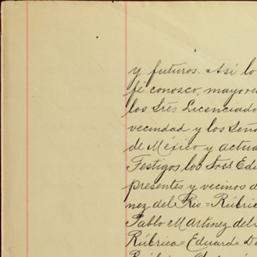 y futuros. Así lo
fé conosco, mayore
los Tres Licenciado
vecindad y los Seño
de México y actua
Testigos los Tres Edu
presentes y vecinos d
nez del Rio = Rubric
Pablo Martinez del
Rúbrica = Eduardo D